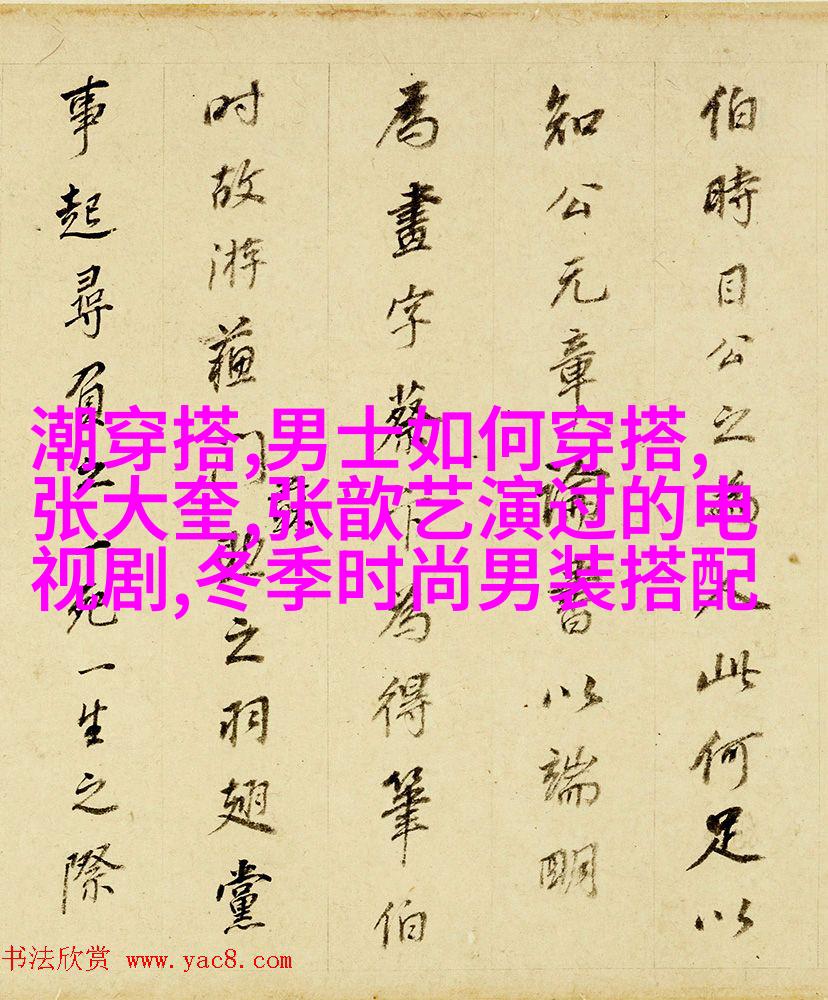 伯時目公之為人此何足以
知公元章論書以端明
為畫字蔡卞為得筆伯
時故游蘓門之羽翅黨
事起尋負之一死一生之際
潮穿搭,男士如何穿搭,
张大奎,张歆艺演过的电
视剧,冬季时尚男装搭配
书法欣赏 www.yac8.com